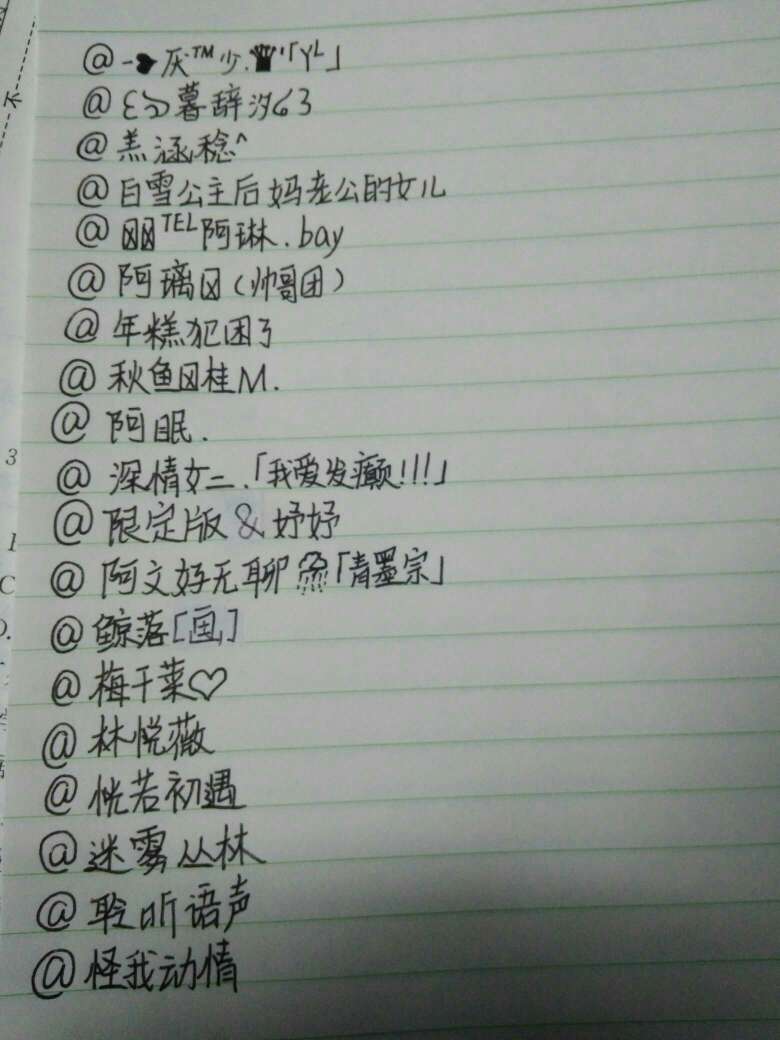 @-❥厌™少.♛「YL」
@ઈઈ暮辞汐63
@羔涵稔^
@白雪公主后妈老公的女儿
@〼〼TEL阿琳.bay
@阿璃〼(帅哥团)
@年糕犯困了
@秋鱼〼桂M.
@阿眠.
@深情女二.「我爱发癫!!!」
@限定版&妤妤
@阿文好无聊「青墨宗」
@鲸落[画]
@梅干菜♡
@林悦薇
@恍若初遇
@迷雾丛林
@聆听语声
@怪我动情